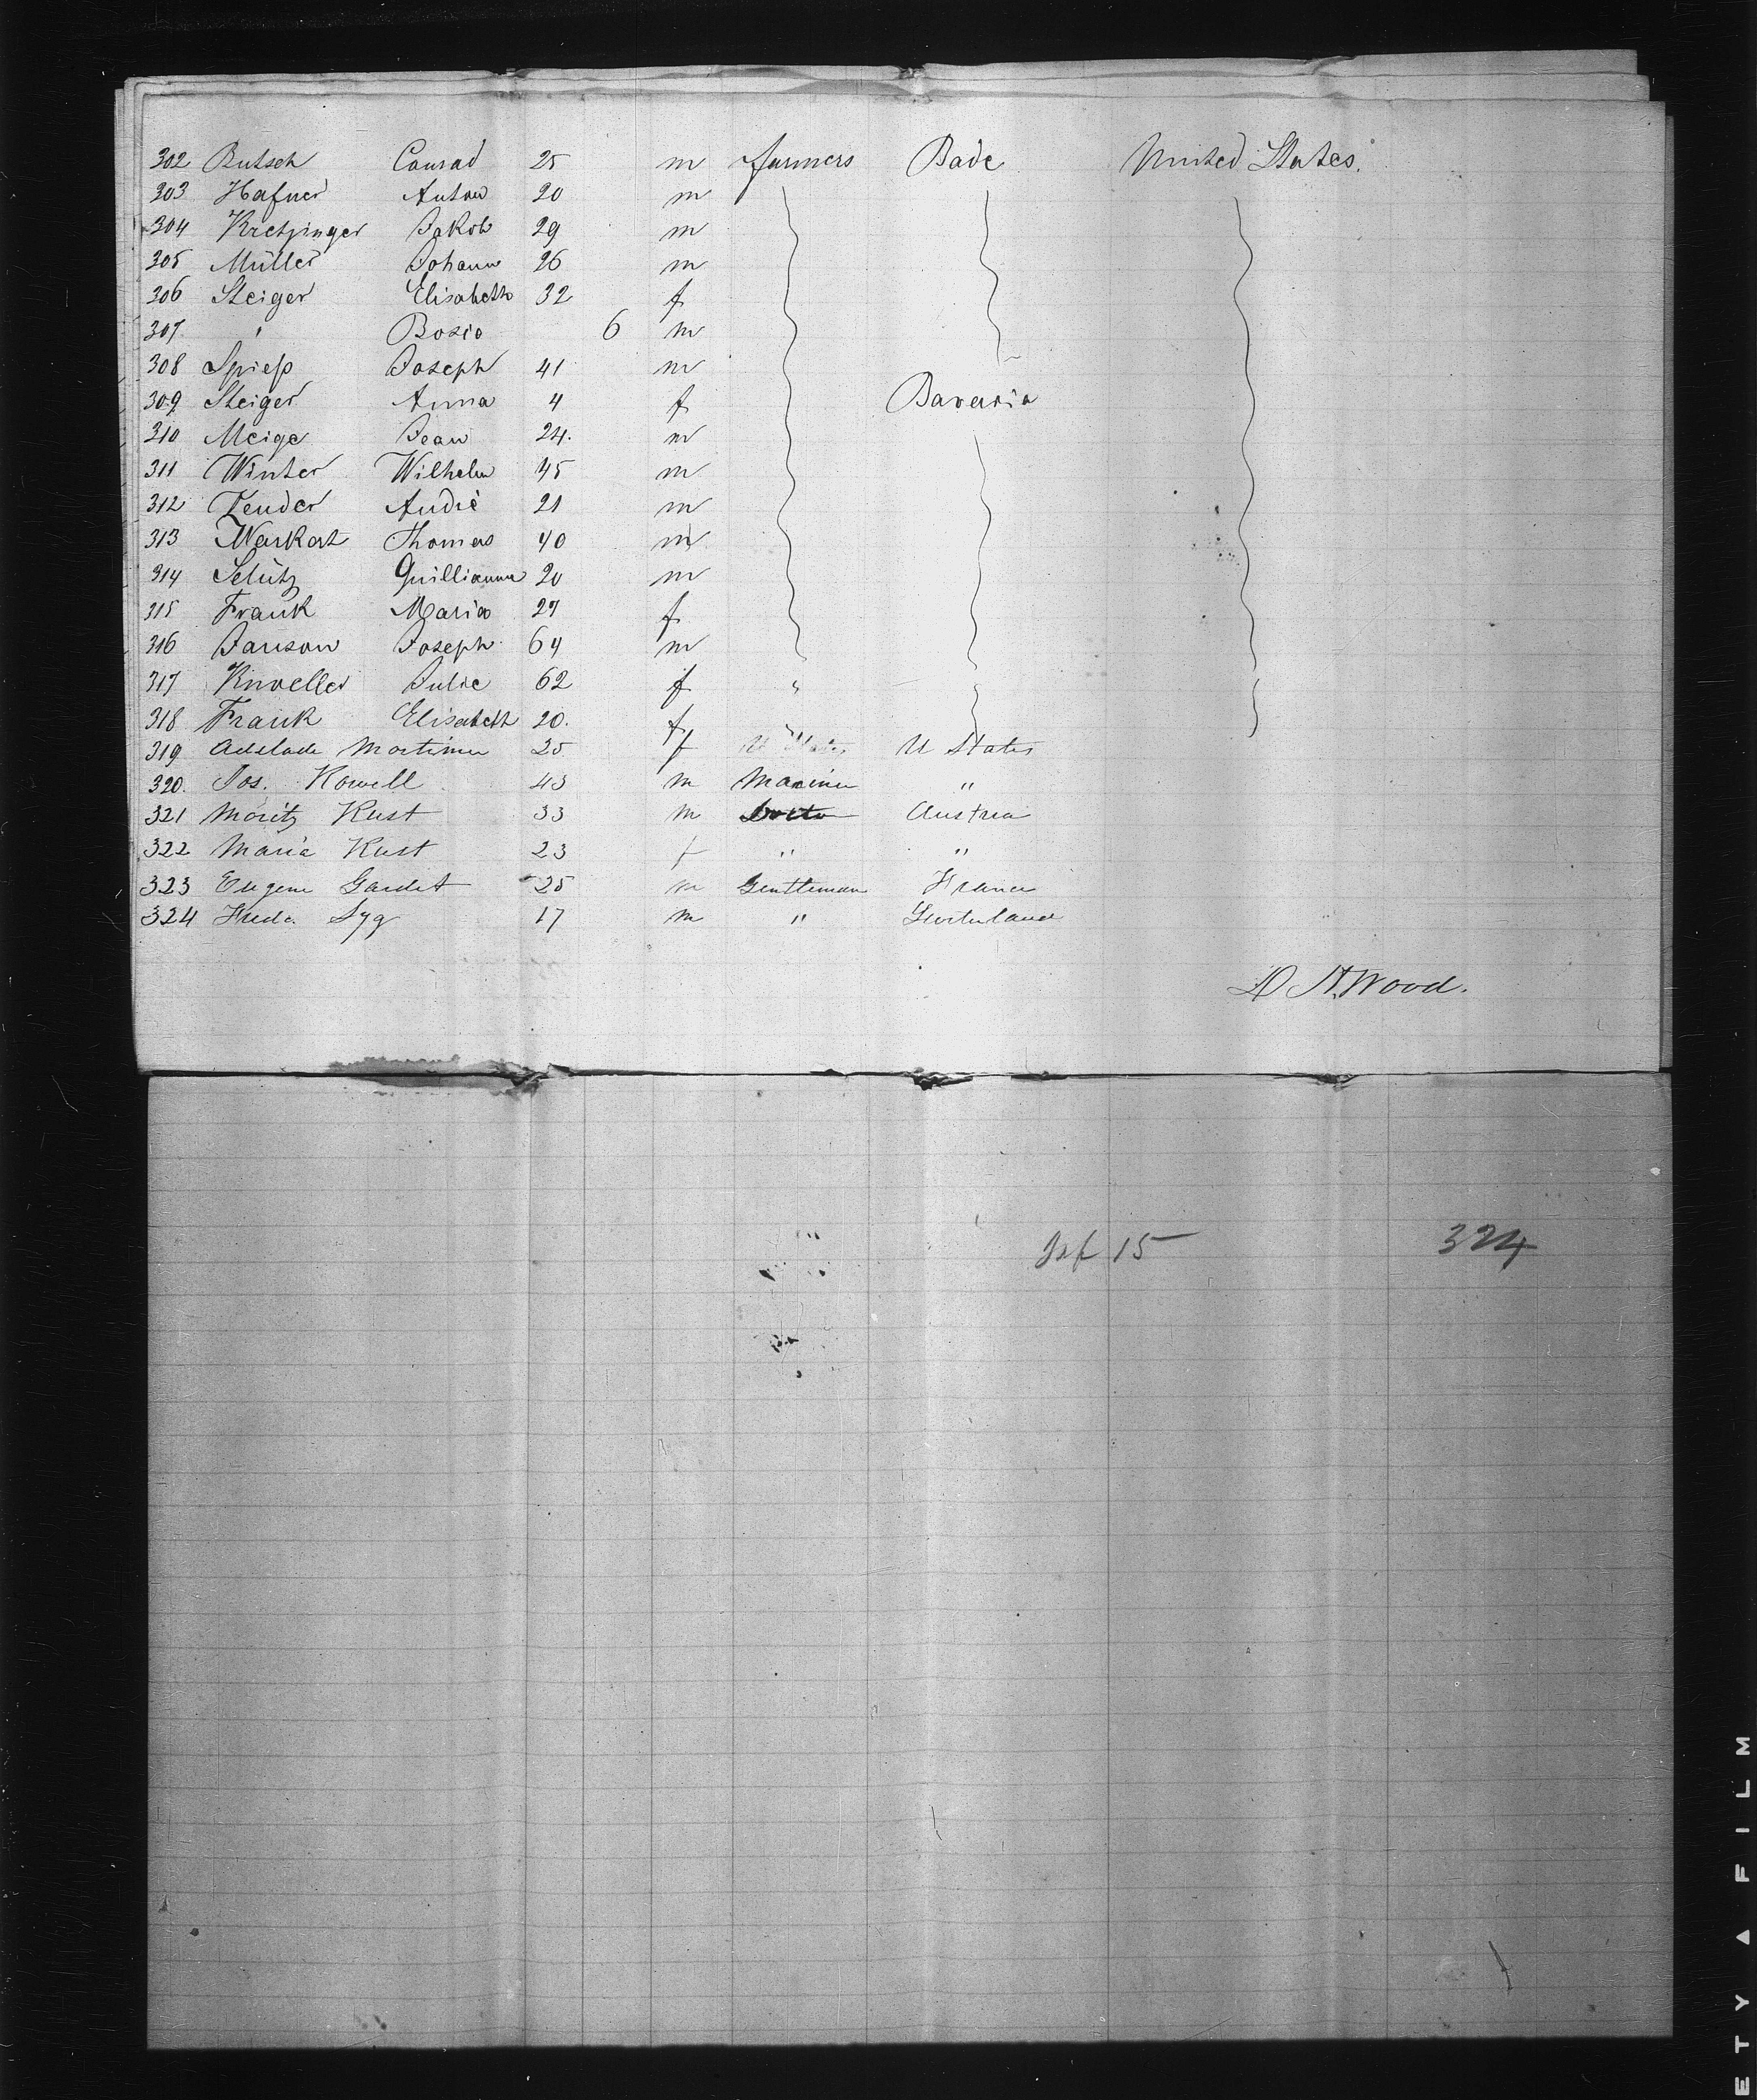 302 Butsch Conrad 25 m farmers Bade United States.
303 Hafner Anton 20 m
304 Kretzinger Jakob 29 m
305 Müller Johann 26 m
306 Steiger Elisabeth 32 f
307 " Bosio 6 m
308 Spieß Joseph 41 m
309 Steiger Anna 4 f Bavaria
310 Meige Jean 24. m
311 Winter Wilhelm 45 m
312 Zender André 21 m
313 Markart Thomas 40 m
314 Schütz Guillianme 20 m
315 Frank Maria 27 f
316 Janson Joseph 64 m
317 Knoeller Julie 62 f "
318 Frank Elisabeth 20. f
319 Adelade Mortimer 25 f U States U States
320. Jos. Howell 43 m Mariner "
321 Moritz Kust 33 m Austria
322 Maria Kust 23 f " "
323 Eugene Gardet 25 m Gentleman France
324 17 m " Switerland
D H. Wood.
15 324
ETY ▲ FILM